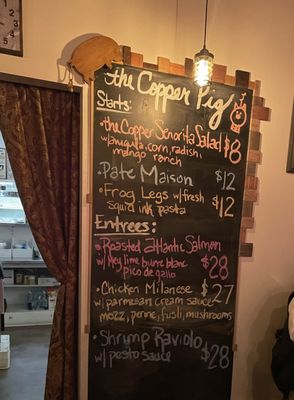 the Copper Pig
Starts:
the Copper Señorita Salad
w/arugula, corn, radish, $8
mango ranch
Pate Maison $12
Frog Legs w/fresh $12
squid ink pasta
Entrees:
Roasted Atlantic Salmon
w/Key lime burre blanc $28
pico de gallo
Chicken Milanese $27
w/parmesan cream sauce
mozz, penne, fusli, mushrooms
Shrimp Raviolo $28
w/pesto sauce